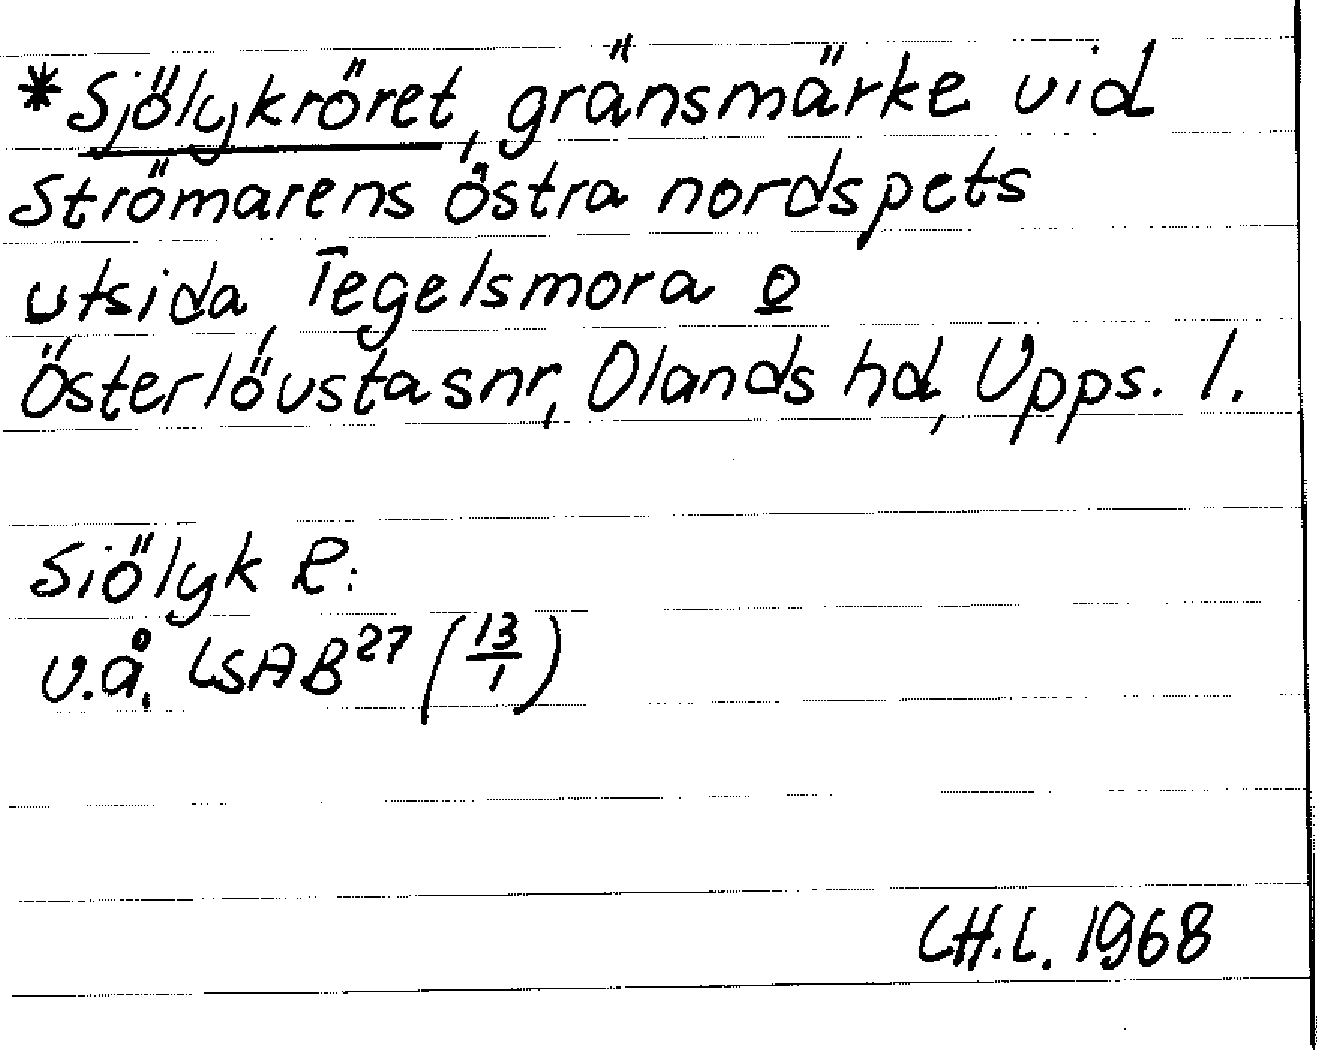 *Sjölykröret, gränsmärke vid
Strömarens östra nordspets
utsida, Tegelsmora o
Österlövsta snr, Olands hd, Upps. l.
Siölyk R:
v.å. LSAB27 (13/1)
CH.L. 1968